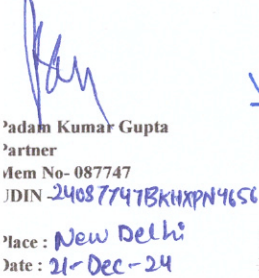 Padam Kumar Gupta
Partner
Mem No- 087747
UDIN -24087747BKHXPN4656
Place : New Delhi
Date : 21-Dec-24